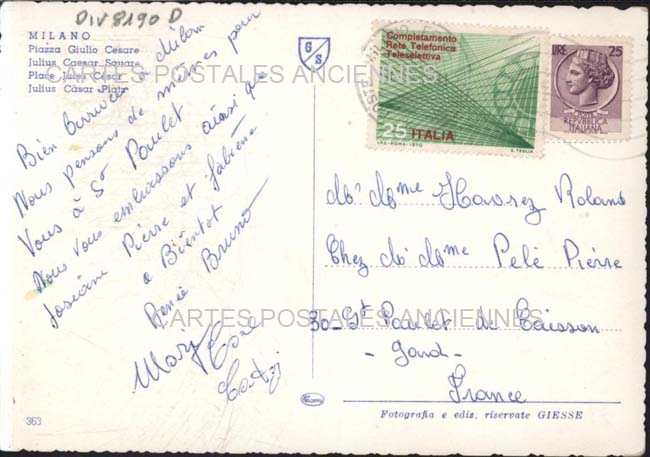 DIV8190 D
MILANO
Piazza Giulio Cesare
Julius Caesar Square
Place Jules César
Julius Cäsar Platz
G
S
Completamento
Rete Telefonica
Teleselettiva
25 ITALIA
I.P.S.-ROMA-1970
LIRE 25
REPVBBLICA
ITALIANA
CARTES POSTALES ANCIENNES
Bien arrivées à Milan
Nous pensons de mêmes pour
Vous à St Paulet
Nous vous embrassons ainsi que
Josiane Pierre et fabiene
a Bientot
Renée Bruno
Mary
Md Mme Havrez Roland
Chez Md Mme Pelé Pierre
30 - St Paulet de Caisson
- Gard -
France
CARTES POSTALES ANCIENNES
363
Fotografia e ediz. riservate GIESSE